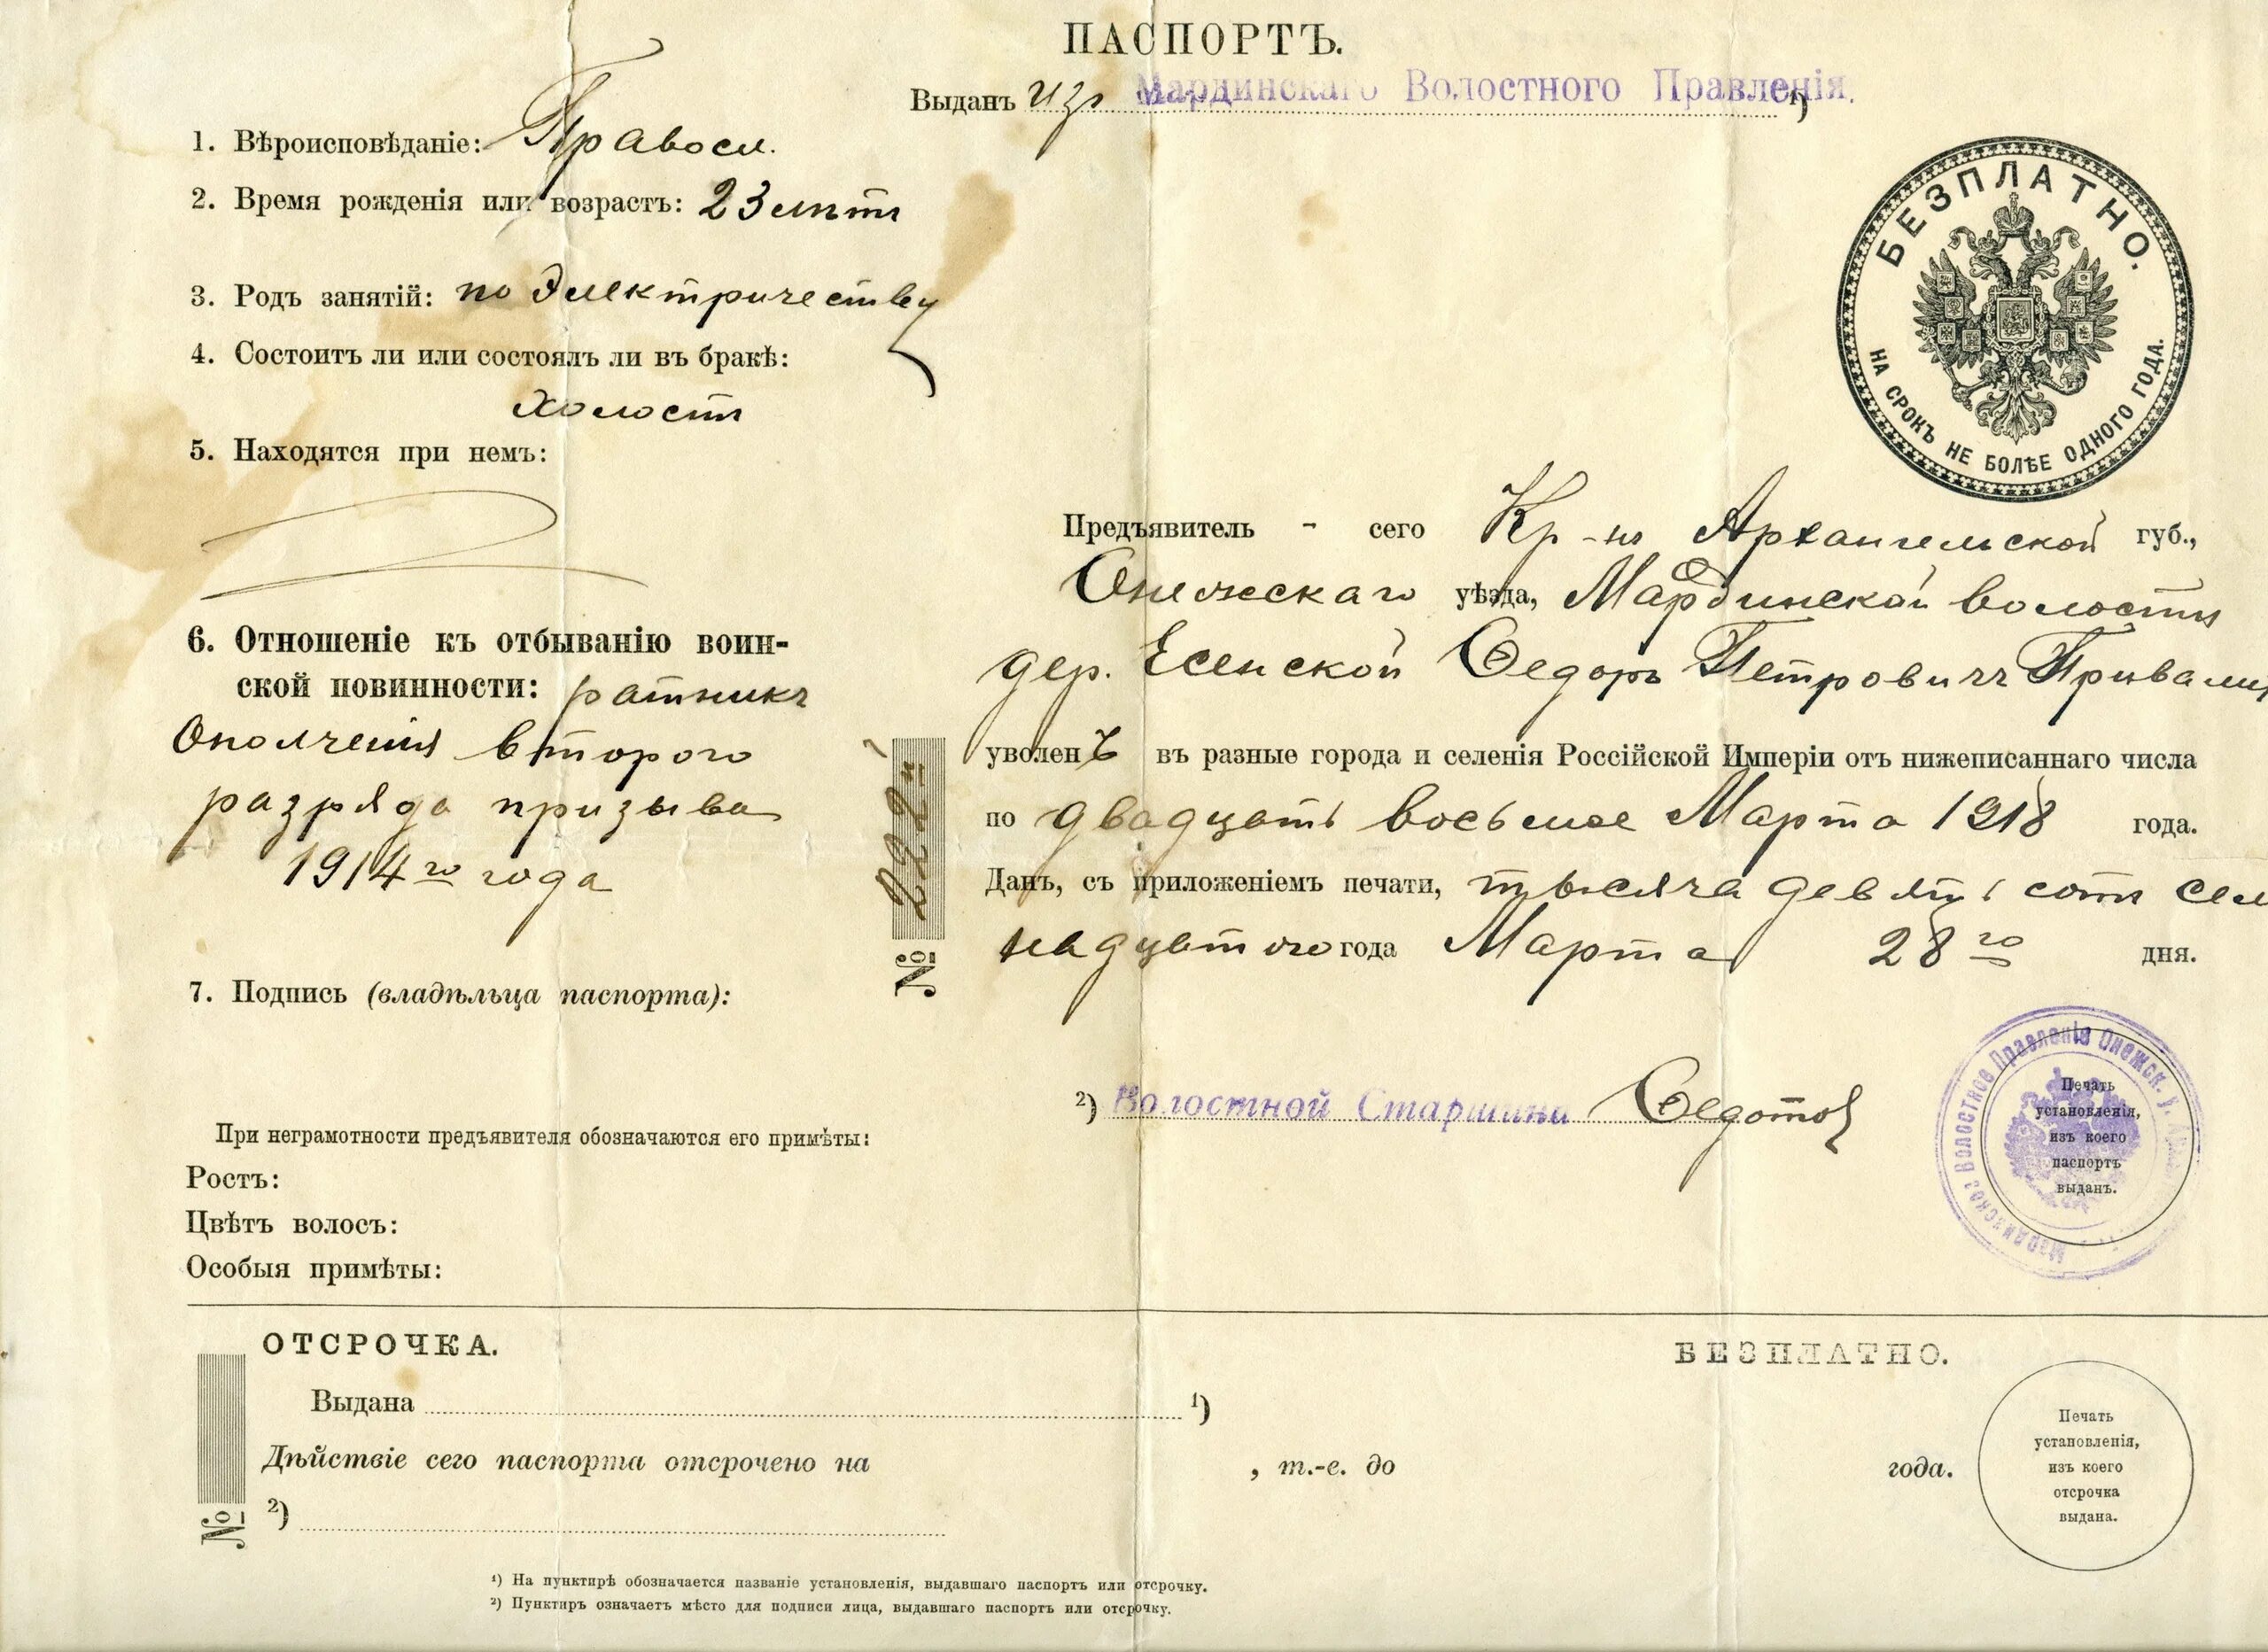 ПАСПОРТЪ.
Выданъ изъ Мардинскаго Волостного Правленія. ¹)
1. Вѣроисповѣданіе: Правосл.
2. Время рожденія или возрастъ: 23 лѣтъ
3. Родъ занятій: по Электричеству
4. Состоитъ ли или состоялъ ли въ бракѣ:
холостъ
5. Находятся при немъ:
6. Отношеніе къ отбыванію воин-
ской повинности: ратникъ
Ополченія второго
разряда призыва
1914 го года
7. Подпись (владѣльца паспорта):
При неграмотности предъявителя обозначаются его примѣты:
Ростъ:
Цвѣтъ волосъ:
Особыя примѣты:
№ 222
БЕЗПЛАТНО.
НА СРОКЪ НЕ БОЛѢЕ ОДНОГО ГОДА.
Предъявитель - сего Кр-нъ Архангельской губ.,
Онежскаго уѣзда, Мардинской волости
дер. Есенской Ѳедоръ Петровичъ
уволенъ въ разные города и селенія Россійской Имперіи отъ нижеписаннаго числа
по двадцать восьмое Марта 1918 года.
Данъ, съ приложеніемъ печати, тысяча девятьсотъ сем
надцатого года Марта 28 го дня.
²) Волостной Старшина Ѳедотов
Мардинское Волостное Правленіе Онежск. у.
Печать
установленія,
изъ коего
паспортъ
выданъ.
ОТСРОЧКА.
БЕЗПЛАТНО.
Выдана ¹)
Дѣйствіе сего паспорта отсрочено на , т.-е. до года.
№ ²)
Печать
установленія,
изъ коего
отсрочка
выдана.
¹) На пунктирѣ обозначается названіе установленія, выдавшаго паспортъ или отсрочку.
²) Пунктиръ означаетъ мѣсто для подписи лица, выдавшаго паспортъ или отсрочку.